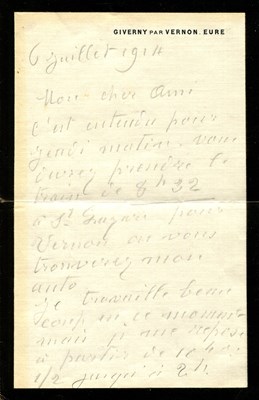 GIVERNY PAR VERNON. EURE
6 juillet 1914
Mon cher Ami
C'est entendu pour
jeudi matin. vous
devrez prendre le
train de 8h32
à St Lazare pour
Vernon où vous
trouverez mon
auto
Je travaille beau
coup en ce moment
mais je me repose
à partir de 10h
1/2 jusqu'à 2h